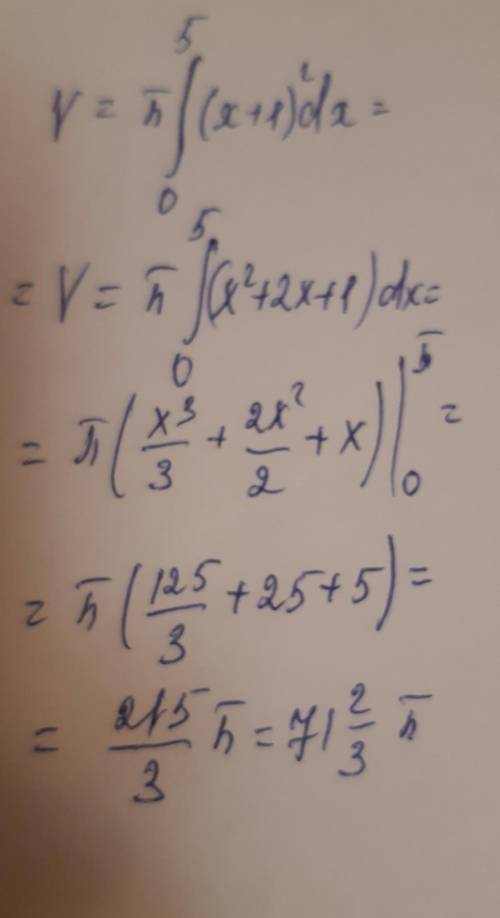 V = π ∫₀⁵ (x+1)² dx =
= V = π ∫₀⁵ (x²+2x+1) dx =
= π (x³/3 + 2x²/2 + x) |₀⁵ =
= π (125/3 + 25 + 5) =
= 215/3 π = 71 2/3 π